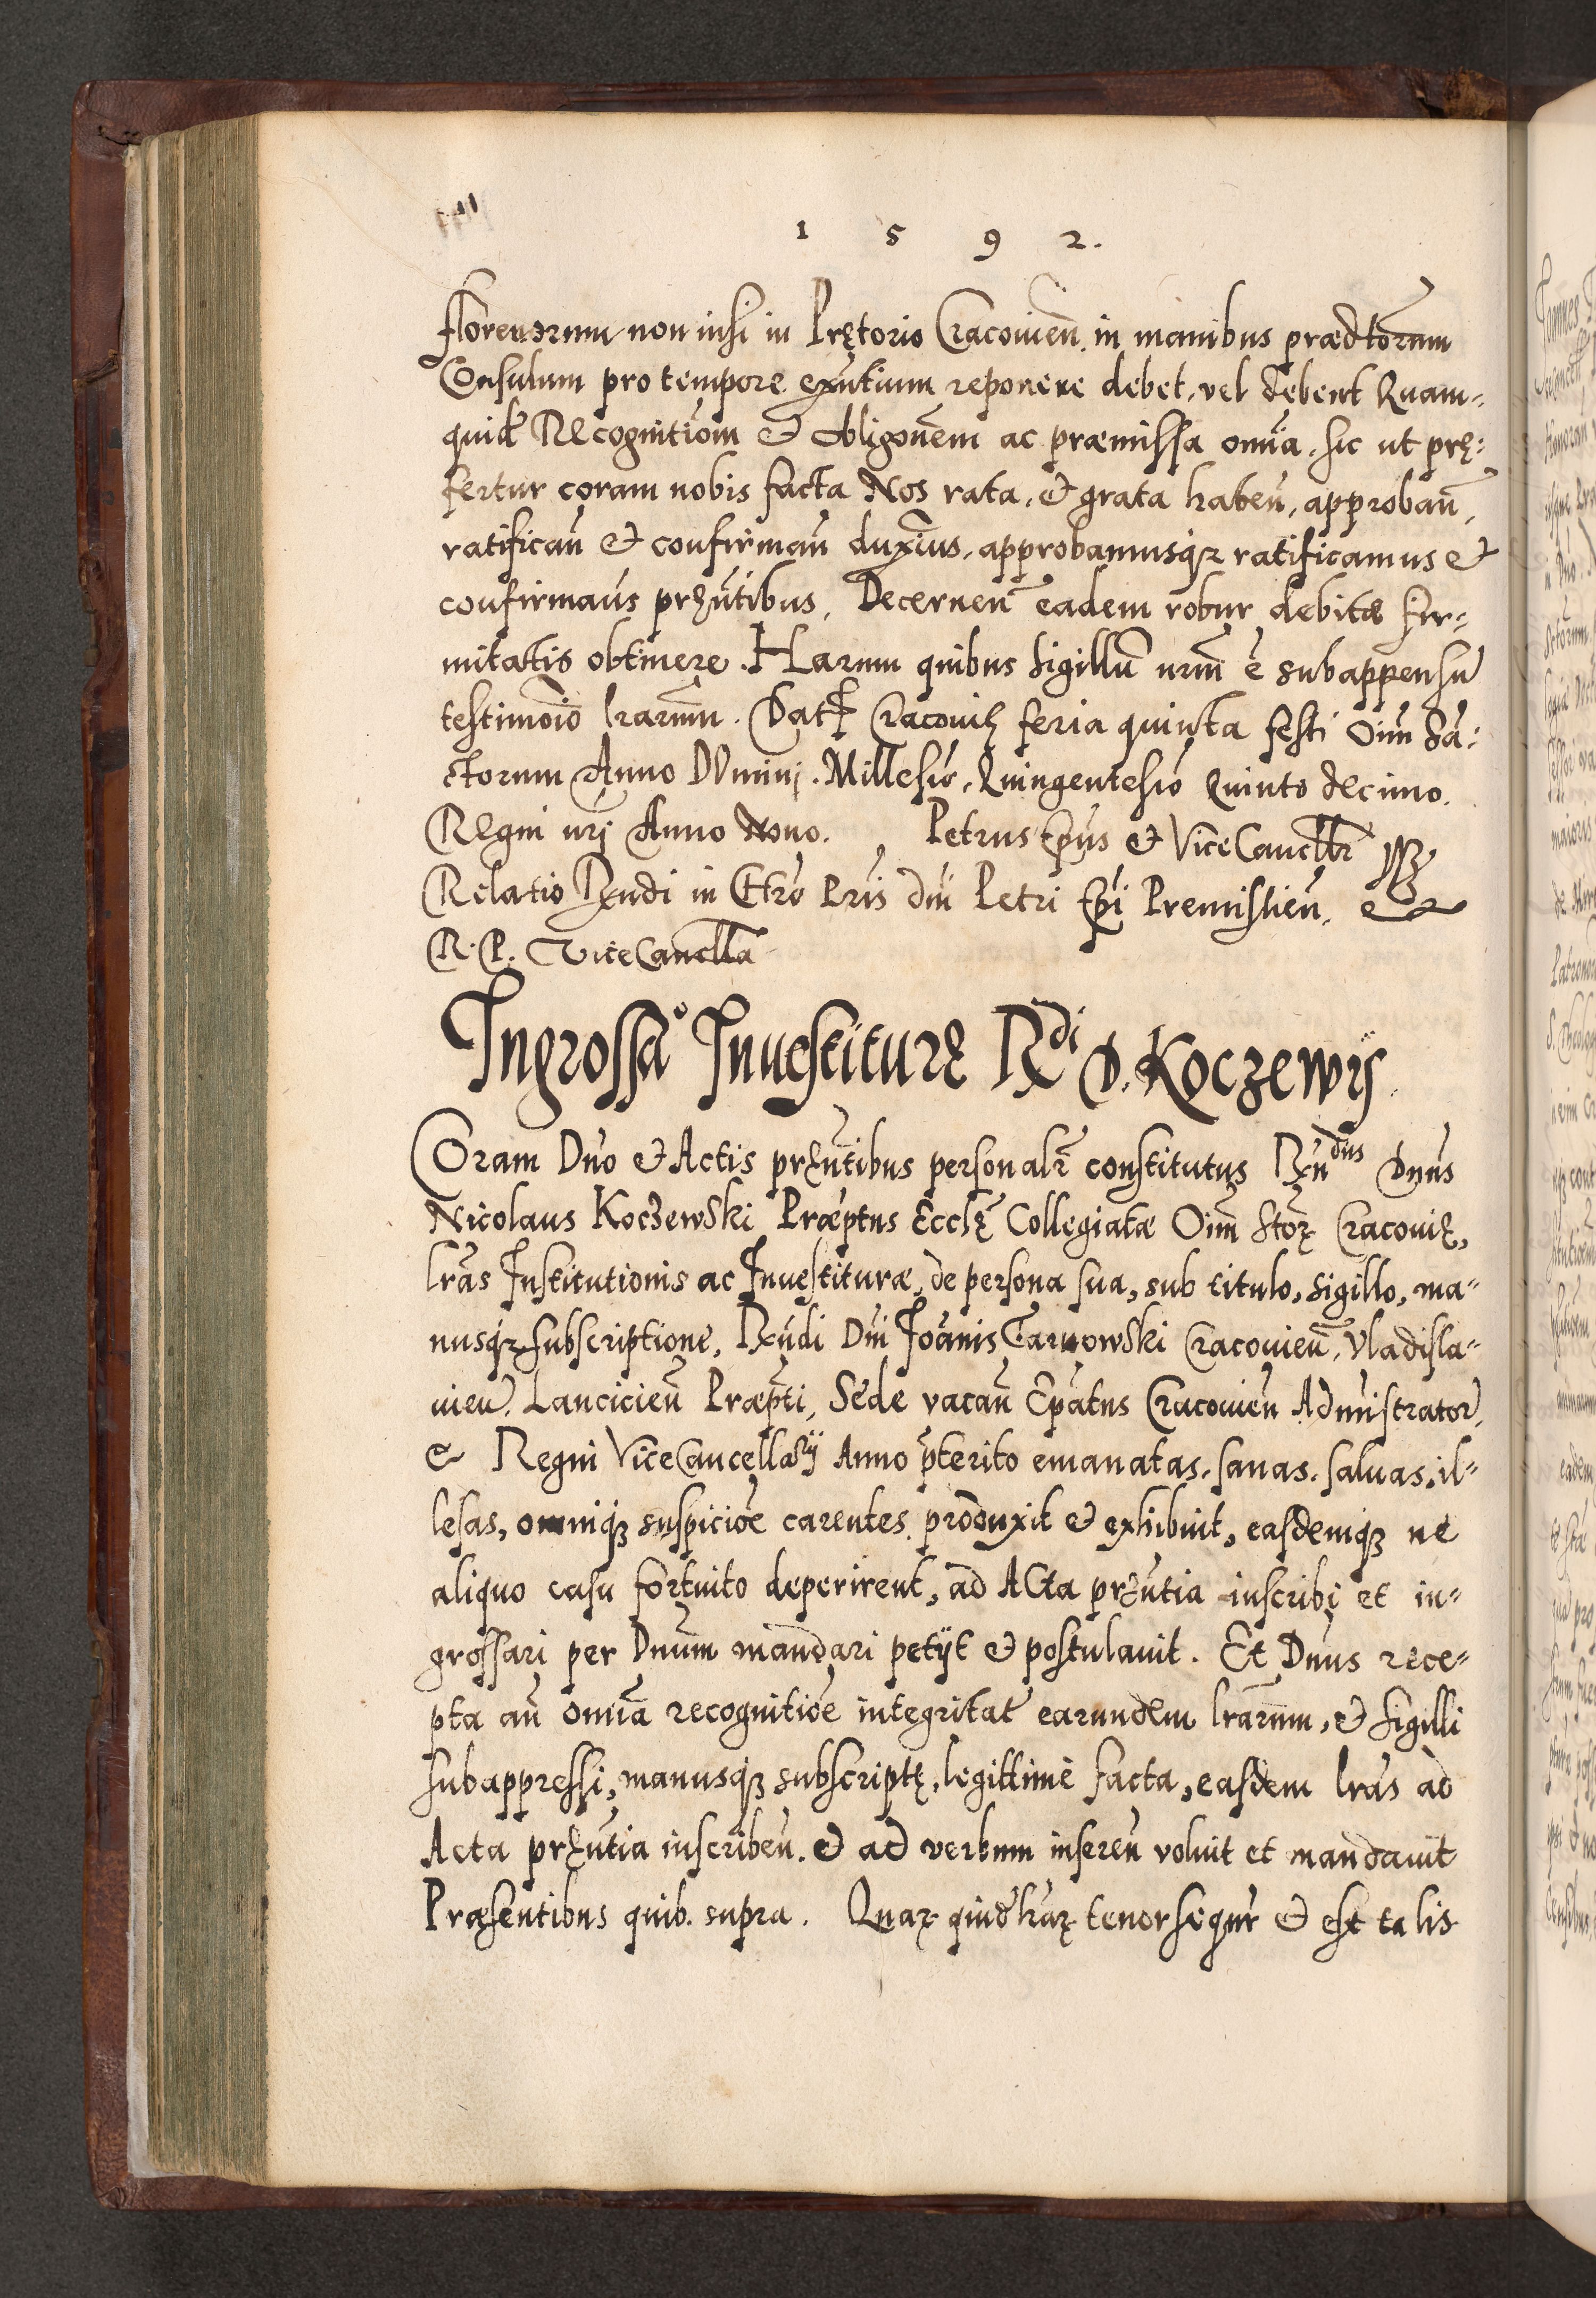 1 5 9 2.
florenorum non nisi in Prętorio Cracouien̄. in manibus prædtorum
Consulum pro tempore exn̄tium reponere debet, vel debent Quam-
quid̄ Recognitiom̄ & obligon̄em ac præmissa omīa. sic ut prę-
fertur coram nobis facta Nos rata, & grata haben̄, approban̄,
ratifican̄ & confirman̄ duxim̄us, approbamusq̃ ratificamus &
confirmam̄s prꝫn̄tibus, Decernen̄ eadem robur debitæ fir-
mitatis obtinere. Harum quibus Sigillū nrm̄ ē subappensū
testimoīo lrarum̄. Datꝭ Cracouię feria quinta festi Oīm Sā-
ctorum Anno Domini. Millesīo, Quingentesīo Quinto decimo.
Regni nrī Anno Nono. Petrus Ep̄us & ViceCancllr̄
Relatio Rn̄di in Chro Pris dn̄i Petri Ep̄i Premislien̄.
R. P. ViceCanclla
Ingrossaº Inuestiturę Rdi D. Koczewÿ.
Coram Dn̄o & Actis prꝫn̄tibus personalr̄ constitutus Rn̄dus Dn̄us
Nicolaus Koczewski Præptus Ecclę̄ Collegiatæ Oīm Stor̄ Cracouię,
lr̄as Institutionis ac Inuestituræ, de persona sua, sub titulo, sigillo, ma-
nusq̃ subscriptione, Rn̄di Dn̄i Joan̄is Tarnowski Cracouien̄, Vladisla-
uien̄. Lancicien̄ Præpti, Sede vacan̄ Ep̄atus Cracouien̄ Admīstrator̄,
& Regni ViceCancellarÿ Anno p̄terito emanatas. sanas. saluas, il-
lesas, omniq̃ suspiciōe carentes produxit & exhibuit, easdemq̃ ne
aliquo casu fortuito deperirent, ad Acta prꝫn̄tia inscribi et in-
grossari per Dn̄um mandari petÿt & postulauit. Et Dn̄us rece-
pta an̄ omīa recognitiōe integritat̄ earundem lrarum̄, & sigilli
subappressi, manusq̃ subscriptę, legittimè facta, easdem lr̄as ad
Acta prꝫn̄tia inscriben̄. & ad verbum inseren̄ voluit et mandauit
Præsentibus quib. supra. Quar̄ quid̄ lrar̄ tenor seqūr & est talis